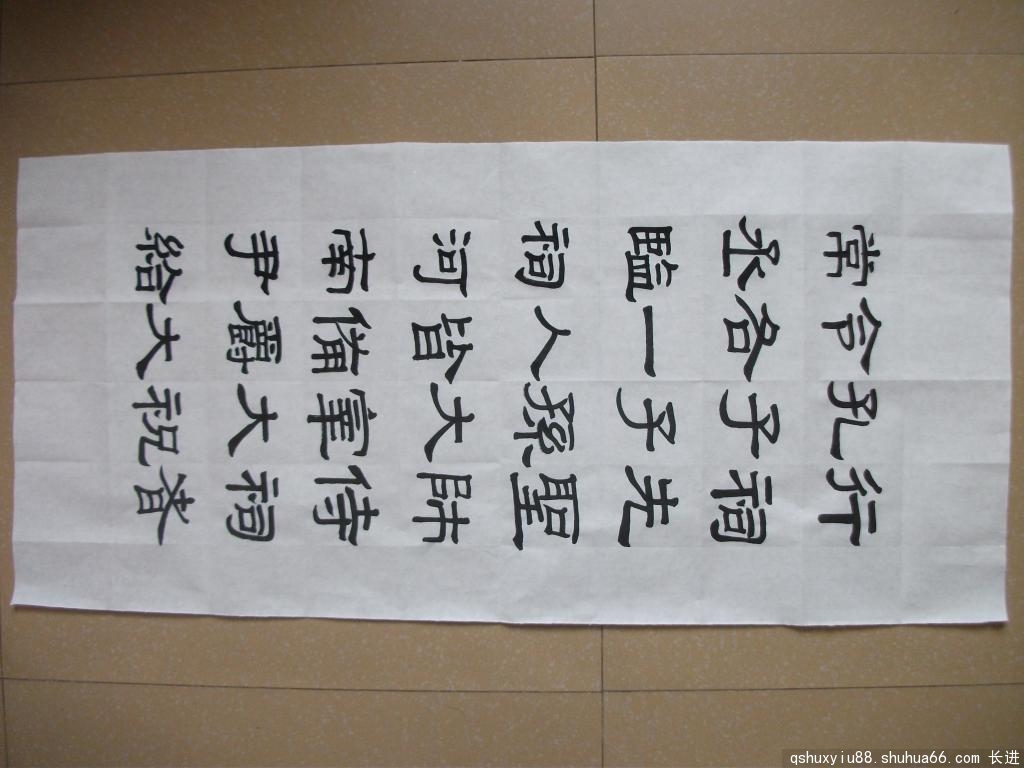 行祠先聖師侍祠者
孔子子孫大宰大祝
令各一人皆備爵大
常丞監祠河南尹給
qshuxyiu88.shuhua66.com 长进